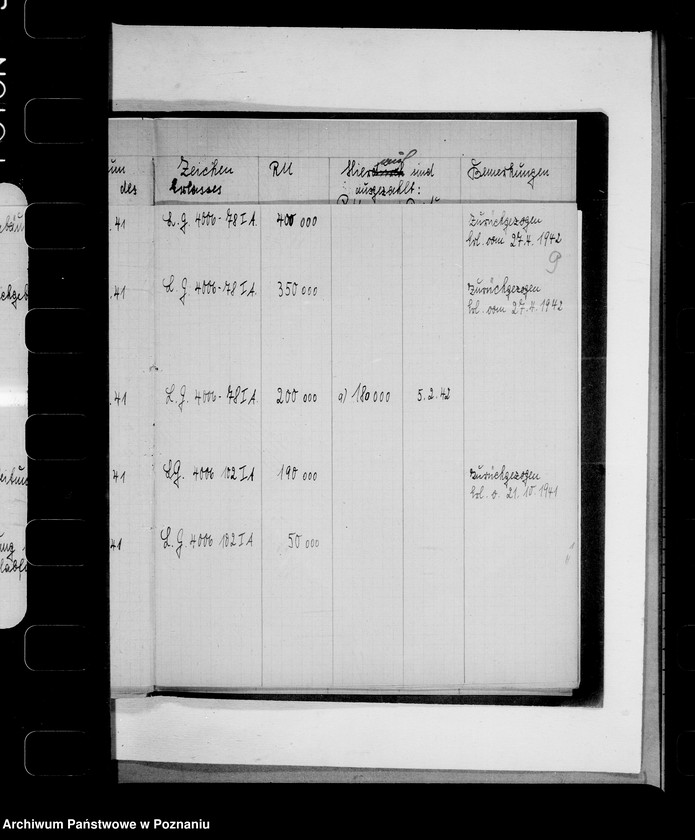 Zeichen RM Hierauf sind Bemerkungen
des Erlasses ausgezahlt:
.41 L.G. 4006-78 I A. 400 000 Zurückgezogen
Erl. vom 27.4.1942
9
.41 L.G. 4006-78 I A. 350 000 Zurückgezogen
Erl. vom 27.4.1942
.41 L.G. 4006-78 I A. 200 000 a) 180 000 5.2.42
41 LG. 4006 102 I A 190 000 Zurückgezogen
Erl. v. 21.10.1941
41 L.G. 4006 102 I A 50 000
Archiwum Państwowe w Poznaniu